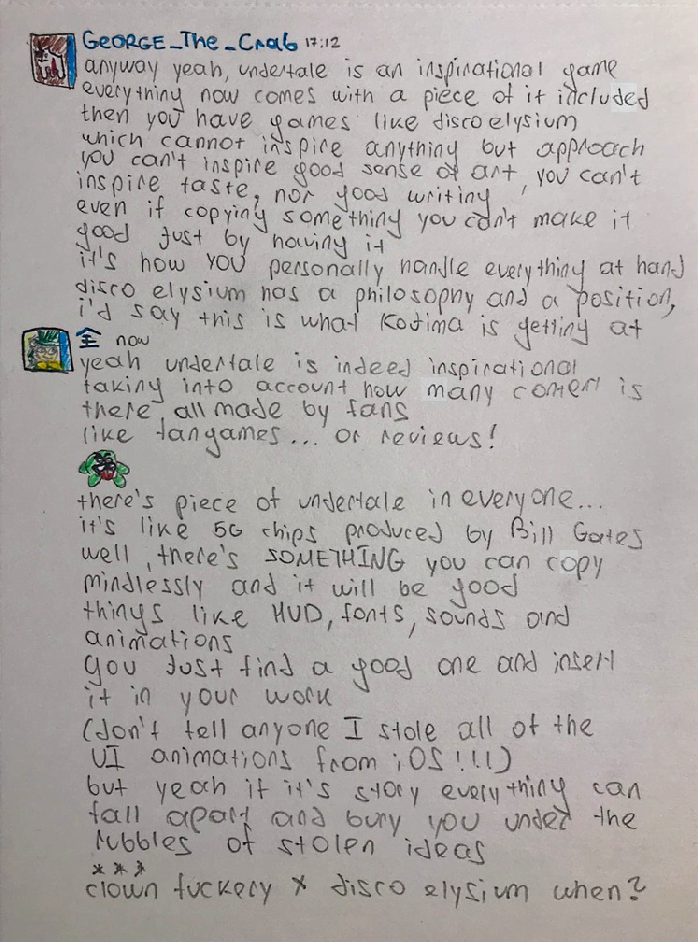 GEORGE_The_Crab 17:12
anyway yeah, undertale is an inspirational game
everything now comes with a piece of it included
then you have games like disco elysium
which cannot inspire anything but approach
you can't inspire good sense of art, you can't
inspire taste, nor good writing
even if copying something you can't make it
good just by having it
it's how YOU personally handle everything at hand
disco elysium has a philosophy and a position,
i'd say this is what Kojima is getting at
全 now
yeah undertale is indeed inspirational
taking into account how many content is
there, all made by fans
like fangames... or reviews!
there's piece of undertale in everyone...
it's like 5G chips produced by Bill Gates
well, there's SOMETHING you can copy
mindlessly and it will be good
things like HUD, fonts, sounds and
animations
you just find a good one and insert
it in your work
(don't tell anyone I stole all of the
UI animations from iOS!!!)
but yeah if it's story everything can
fall apart and bury you under the
rubbles of stolen ideas
***
clown fuckery x disco elysium when?